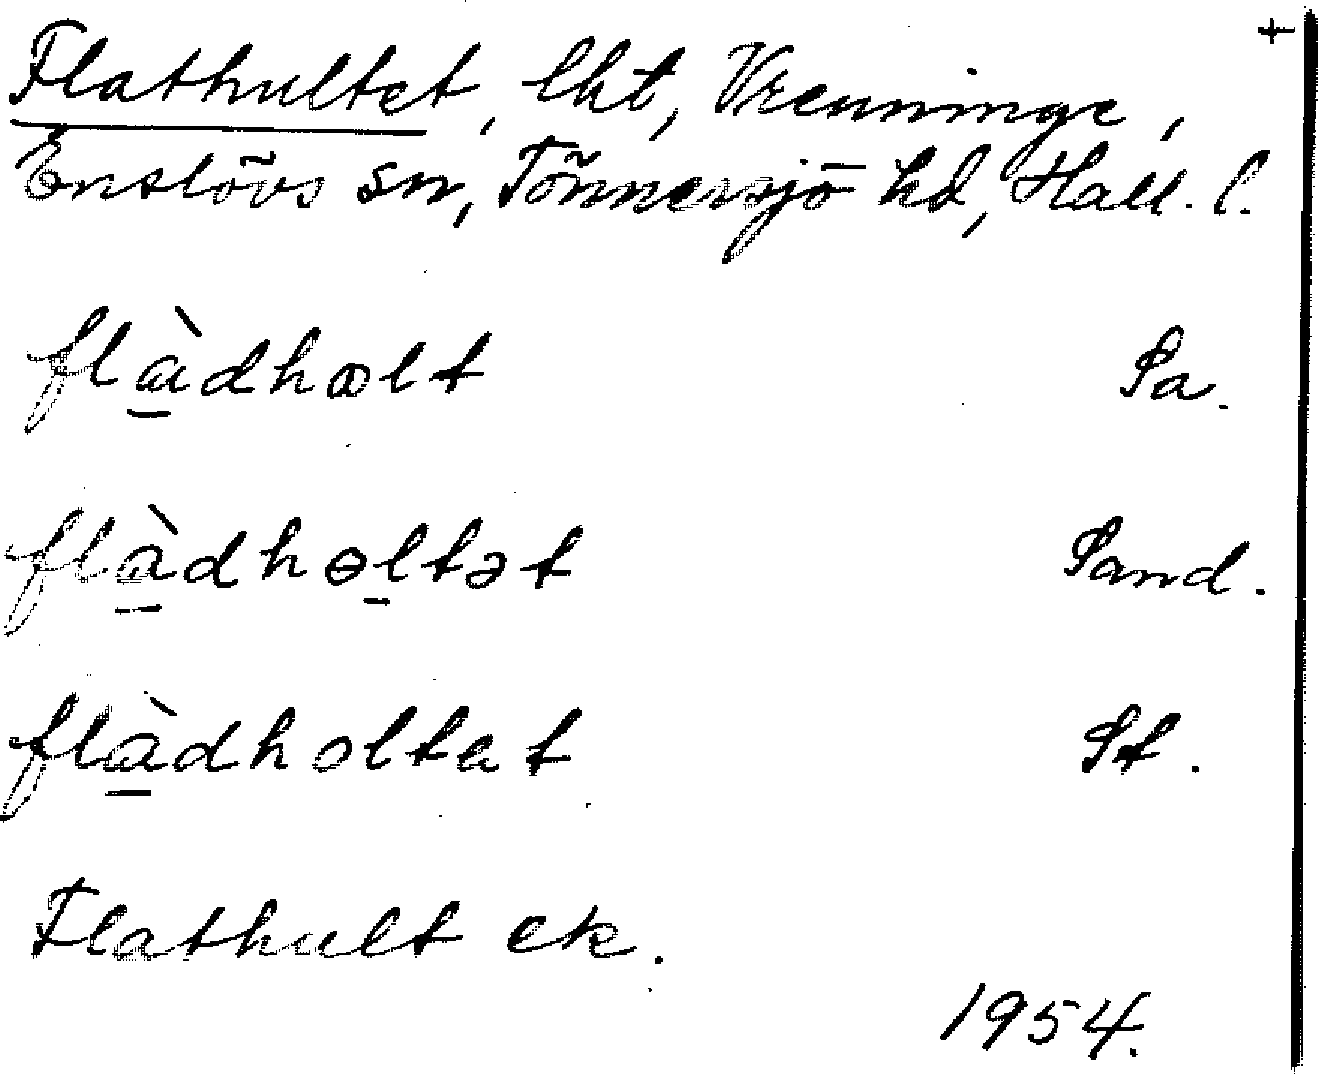 +
Flathultet, lht, Vrenninge,
Enslövs sn, Tönnersjö hd, Hall. l.
flàdhɷlt Sa.
flàdhɵltət Sand.
flàdholtat St.
Flathult ek.
1954.